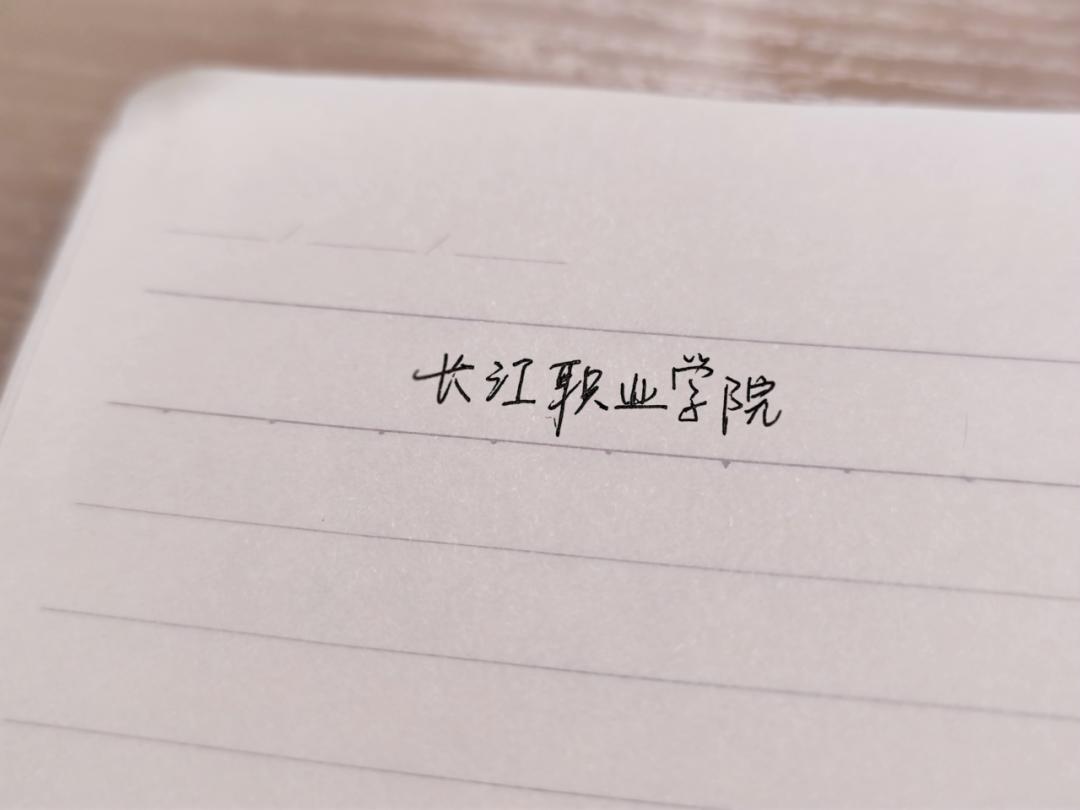 长江职业学院